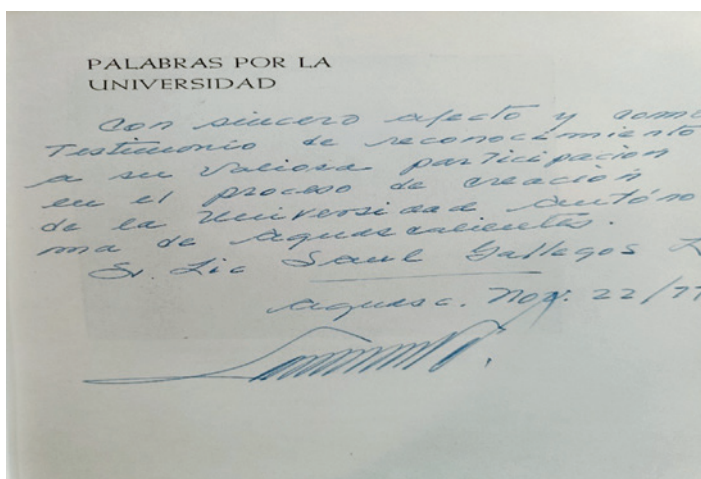 PALABRAS POR LA
UNIVERSIDAD
Con sincero afecto y como
Testimonio de reconocimiento
a su valiosa participación
en el proceso de creación
de la Universidad Autóno
ma de Aguascalientes.
Sr. Lic Saul Gallegos
Aguasc. Nov. 22/77